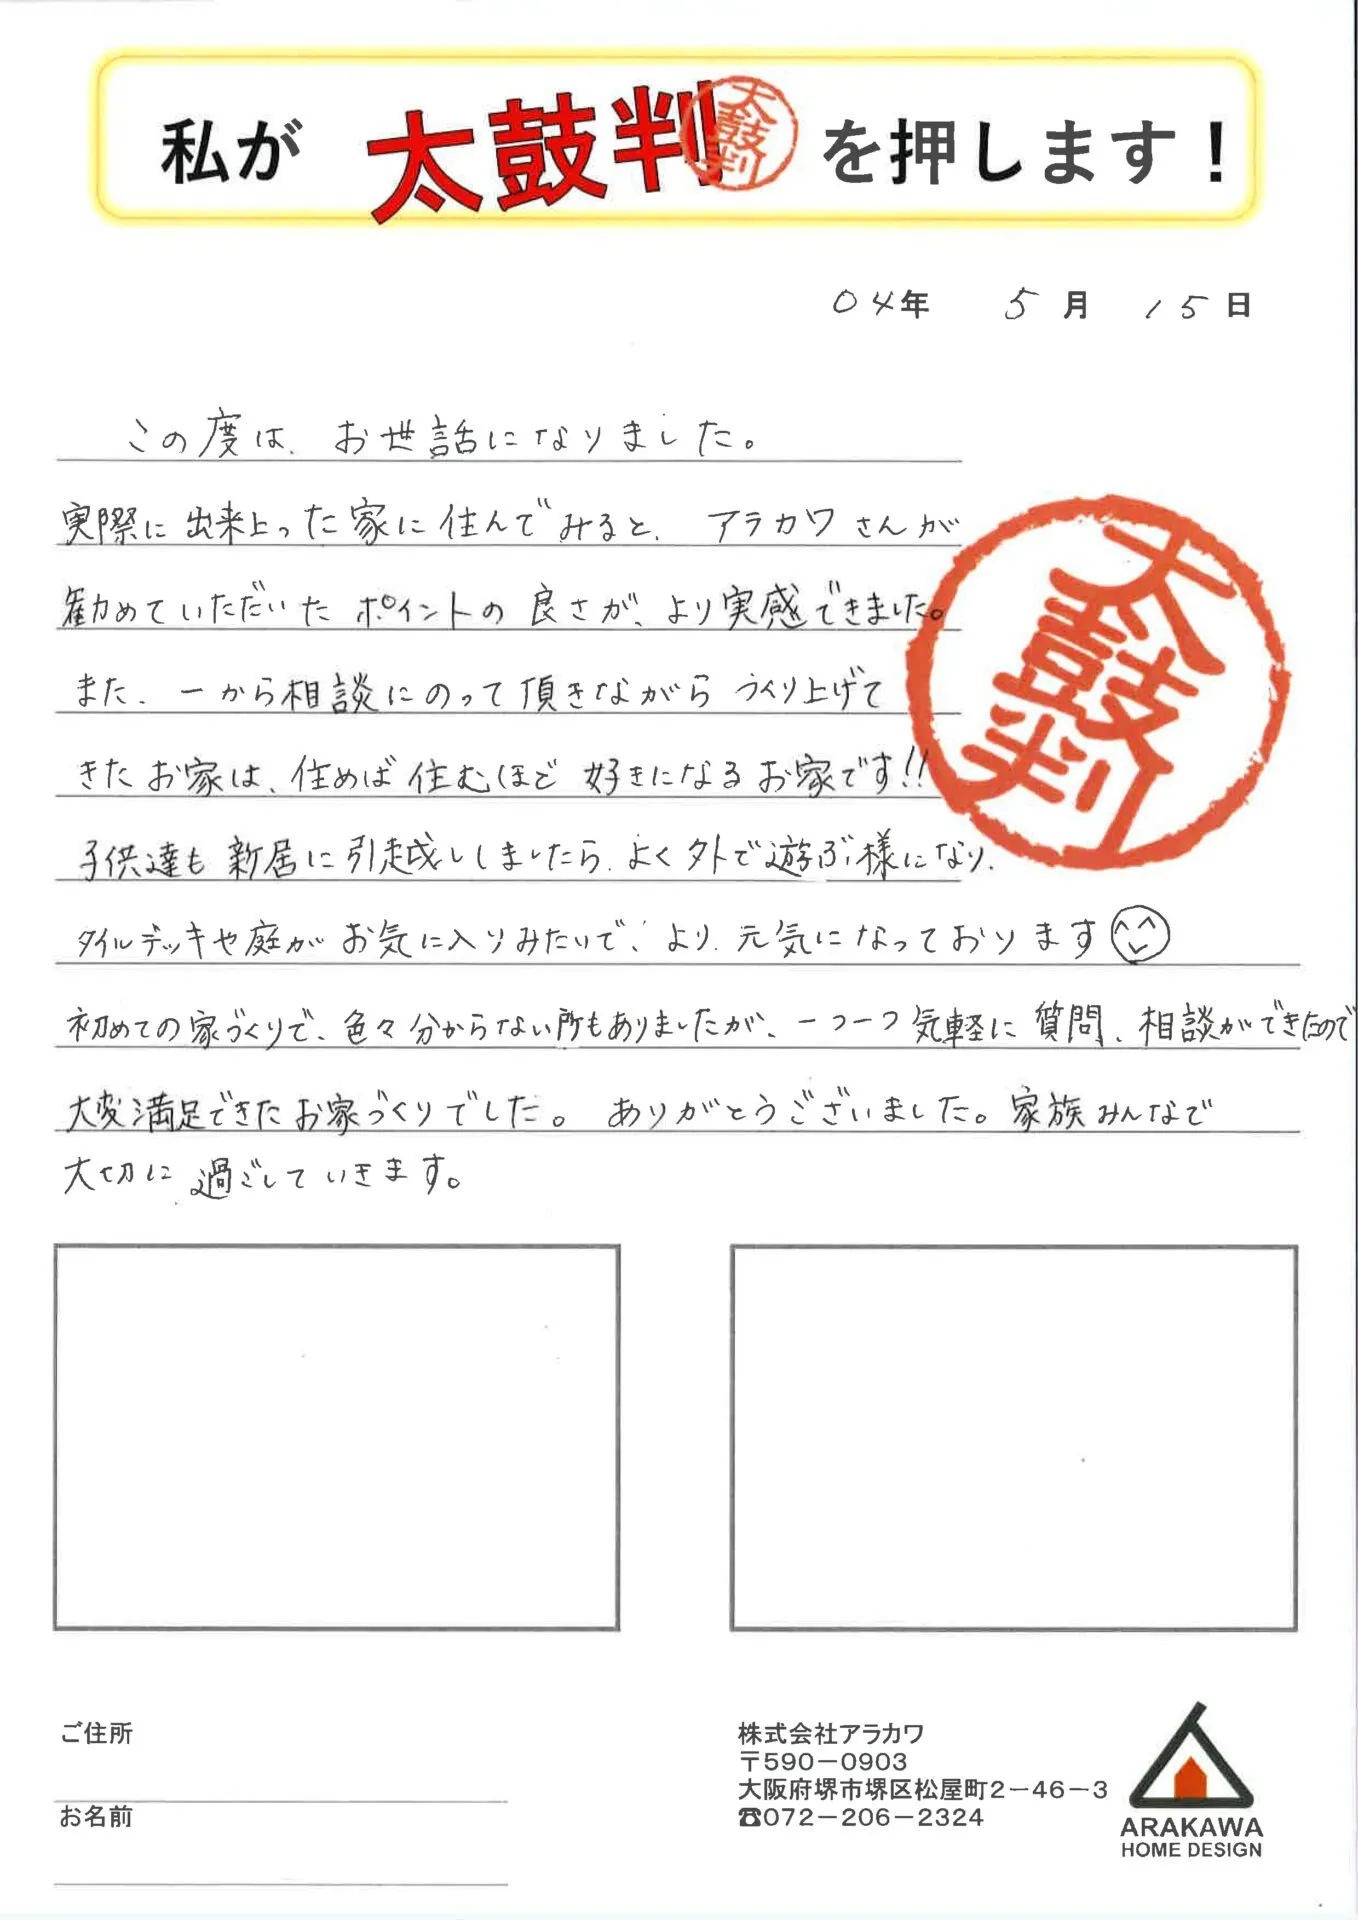 私が 太鼓判 太鼓判 を押します！
04年 5月 15日
この度は、お世話になりました。
実際に出来上った家に住んでみると、アラカワさんが
勧めていただいたポイントの良さが、より実感できました。
また、一から相談にのって頂きながらつくり上げて
きたお家は、住めば住むほど好きになるお家です!!
太鼓判
子供達も新居に引越ししましたら、よく外で遊ぶ様になり、
タイルデッキや庭がお気に入りみたいで、より、元気になっております
初めての家づくりで、色々分からない所もありましたが、一つ一つ気軽に質問、相談ができたので
大変満足できたお家づくりでした。ありがとうございました。家族みんなで
大切に過ごしていきます。
ご住所
お名前
株式会社アラカワ
〒590－0903
大阪府堺市堺区松屋町2－46－3
☎072－206－2324
ARAKAWA
HOME DESIGN